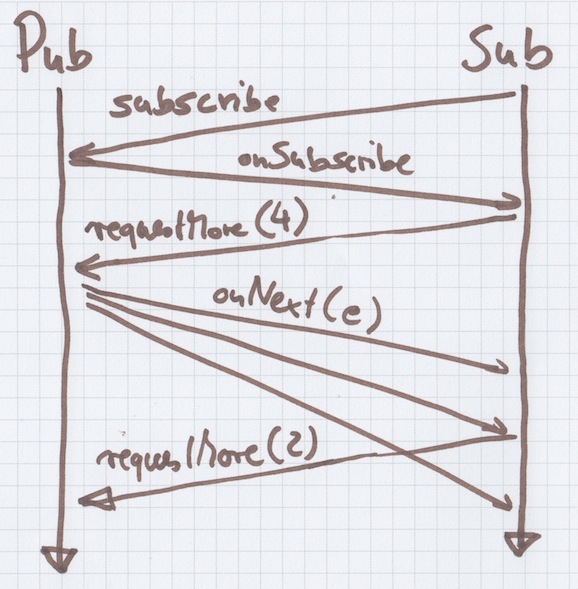 Pub Sub
subscribe
onSubscribe
requestMore(4)
onNext(e)
requestMore(2)